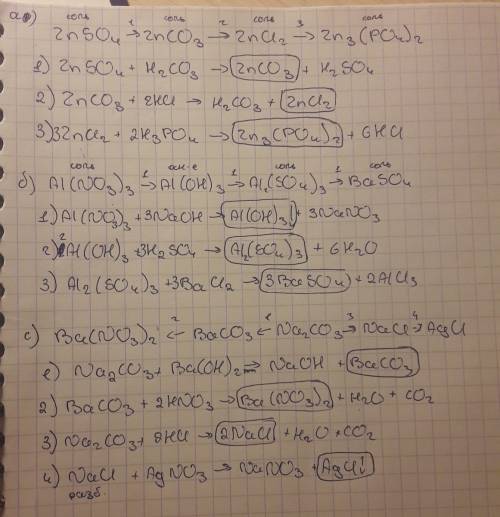 соль соль соль соль
а) ZnSO4 →1 ZnCO3 →2 ZnCl2 →3 Zn3(PO4)2
1) ZnSO4 + H2CO3 → ZnCO3 + H2SO4
2) ZnCO3 + 2HCl → H2CO3 + ZnCl2
3) 3ZnCl2 + 2H3PO4 → Zn3(PO4)2 + 6HCl
соль осн-е соль соль
б) Al(NO3)3 →1 Al(OH)3 →1 Al2(SO4)3 →1 BaSO4
1) Al(NO3)3 + 3NaOH → Al(OH)3↓ + 3NaNO3
2) 2Al(OH)3 + 3H2SO4 → Al2(SO4)3 + 6H2O
3) Al2(SO4)3 + 3BaCl2 → 3BaSO4 + 2AlCl3
с) Ba(NO3)2 ←2 BaCO3 ←1 Na2CO3 →3 NaCl →4 AgCl
1) Na2CO3 + Ba(OH)2 → NaOH + BaCO3
2) BaCO3 + 2HNO3 → Ba(NO3)2 + H2O + CO2
3) Na2CO3 + HCl → 2NaCl + H2O + CO2
4) NaCl + AgNO3 → NaNO3 + AgCl↓
разб.